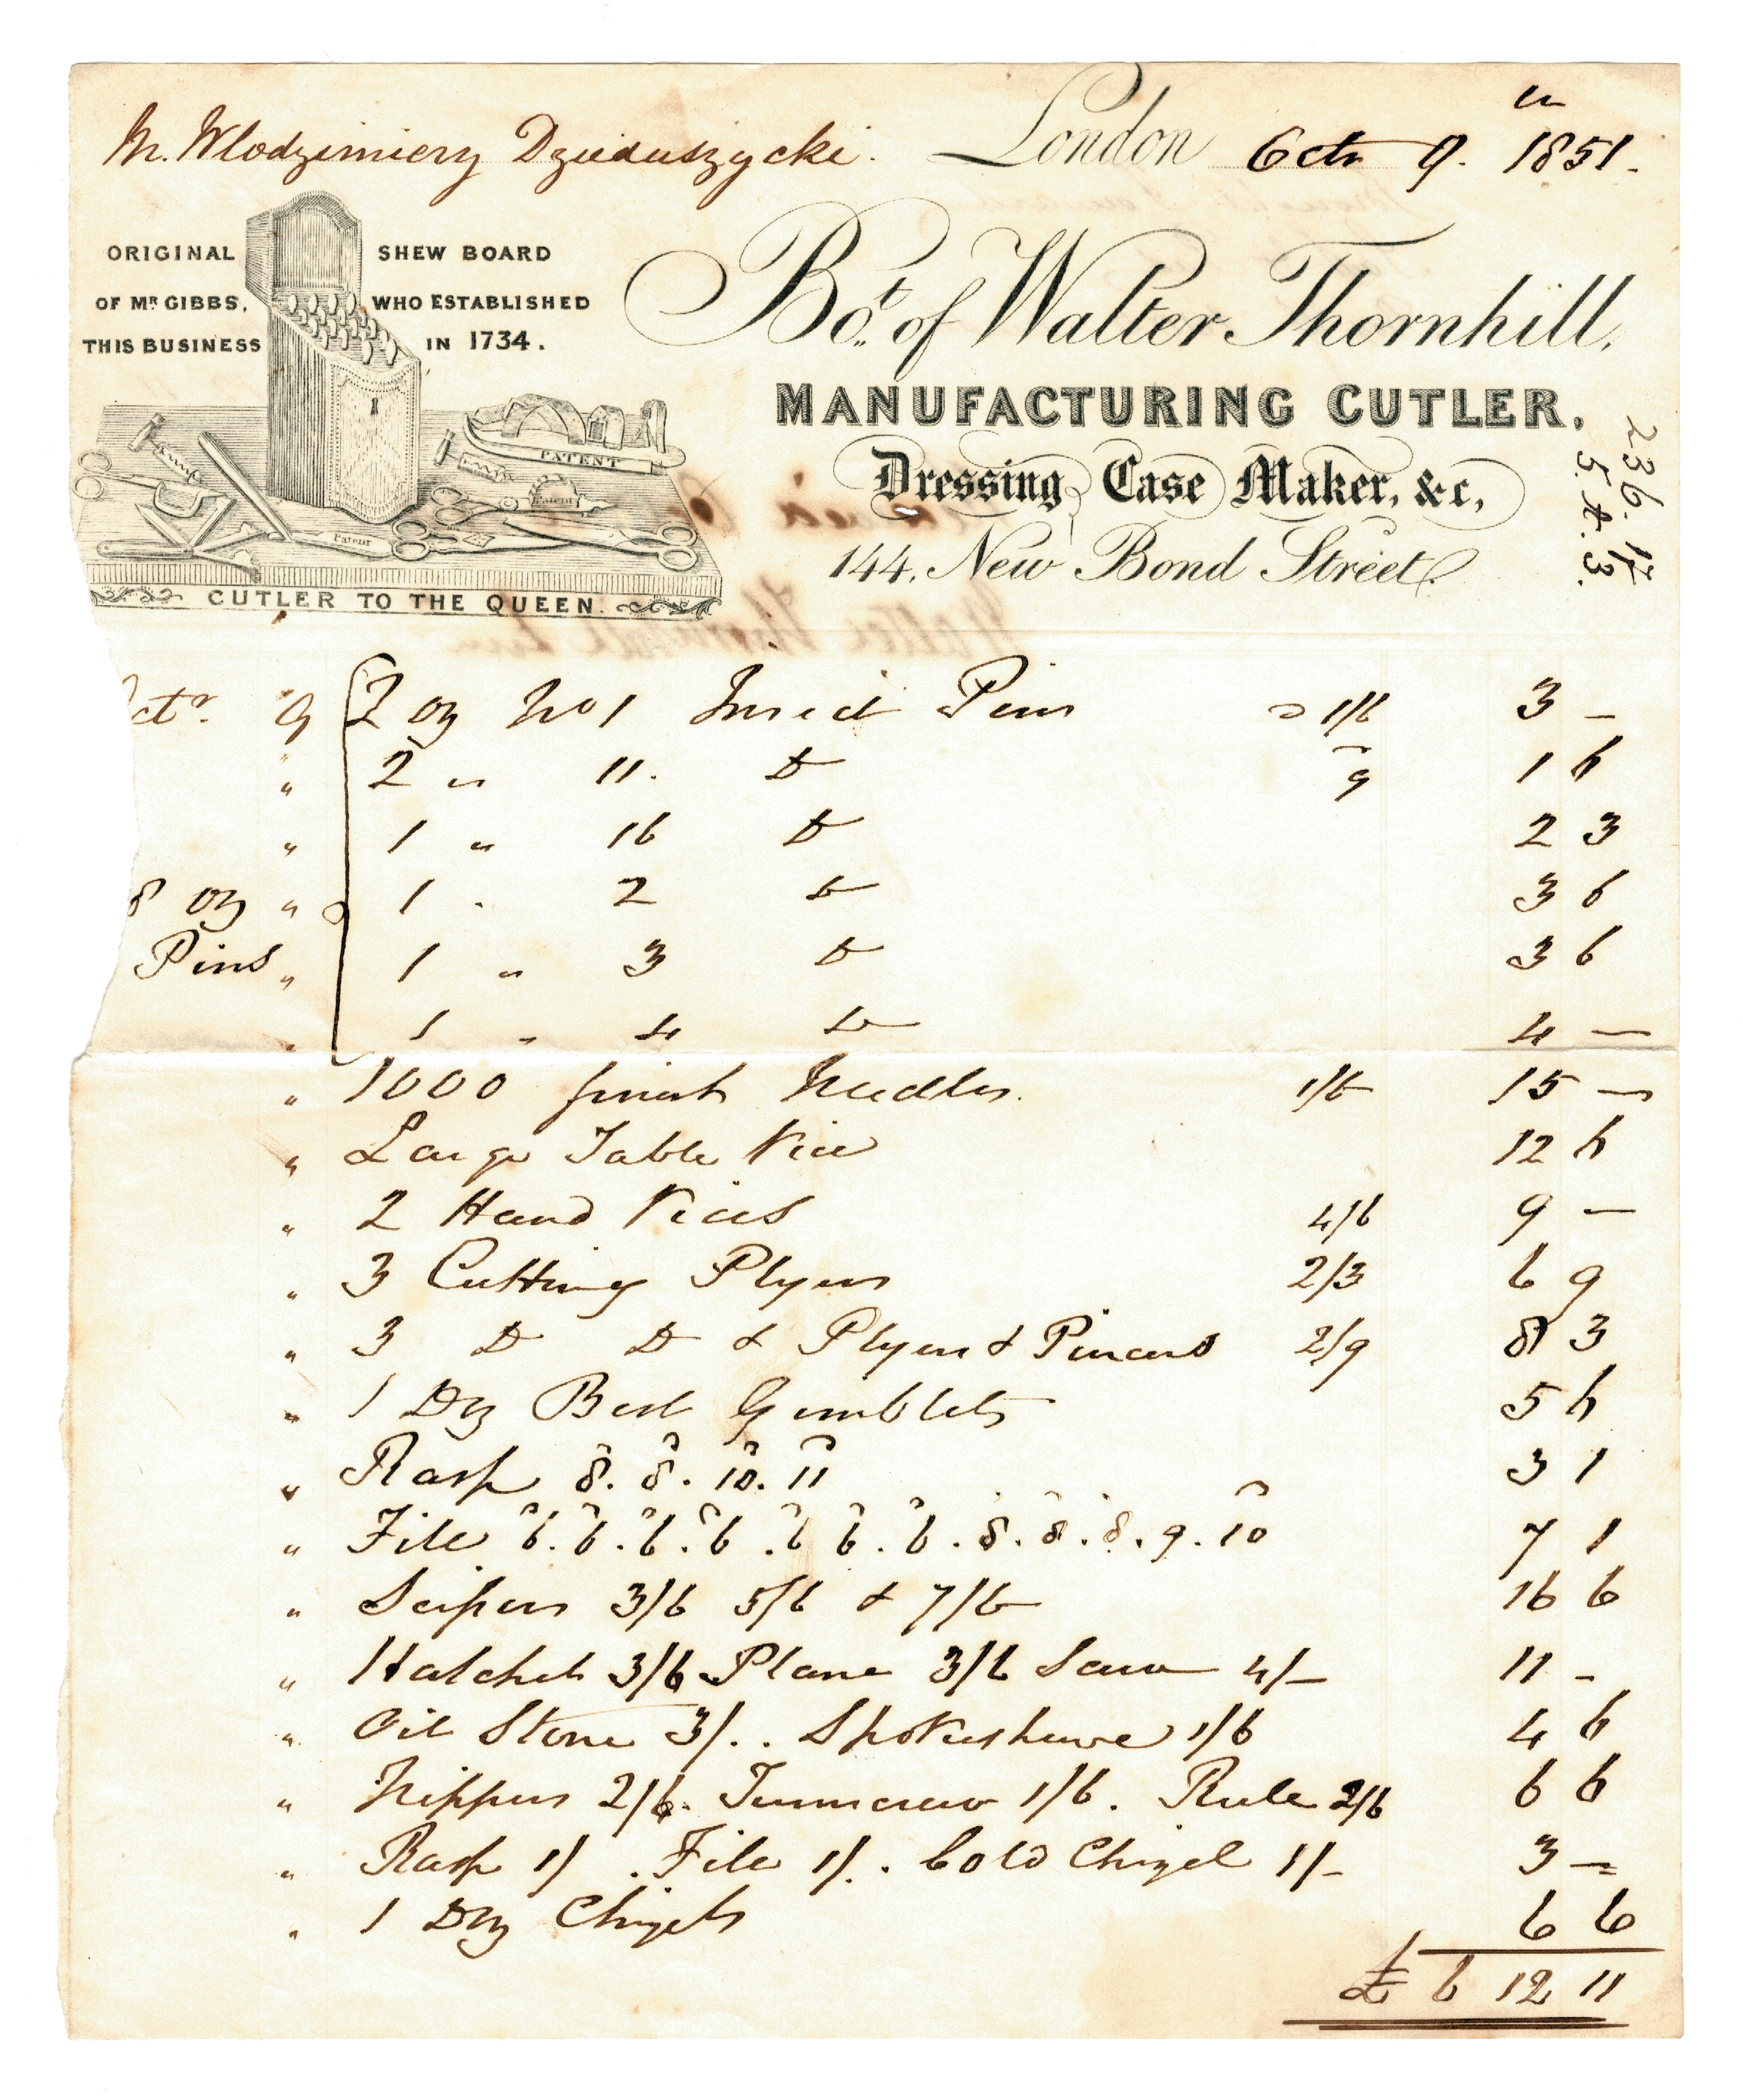 M. Wlodzimierz Dzieduszycki. London Octr 9. 1851.
ORIGINAL SHEW BOARD
OF MR GIBBS, WHO ESTABLISHED
THIS BUSINESS IN 1734.
Bot. of Walter Thornhill,
MANUFACTURING CUTLER,
Dressing Case Maker, &c,
144, New Bond Street.
PATENT
Patent
Patent
CUTLER TO THE QUEEN.
236. 17
5. 4. 3.
ctr. 9 2 oz No 1 Insect Pins 1/6 3 –
" 2 " 11. Do 9 1 6
" 1 " 16 Do 2 3
8 oz " 1 . 2 Do 3 6
Pins " 1 " 3 Do 3 6
" 1 " 4 Do 4 –
" 1000 finest Needles. 1/6 15 –
" Large Table Vice 12 6
" 2 Hand Vices 4/6 9 –
" 3 Cutting Plyers 2/3 6 9
" 3 Do Do & Plyers & Pincers 2/9 8 3
" 1 Dz Best Gimblets 5 6
" Rasp 8. 8. 10. 11 3 1
" File 6. 6. 6. 6. 6 6. 6. 8. 8. 8. 9. 10 7 1
" Scissors 3/6 5/6 & 7/6 16 6
" Hatchet 3/6 Plane 3/6 Saw 4/– 11 –
" Oil Stone 3/. . Spokeshave 1/6 4 6
" Nippers 2/6. Turnscrew 1/6. Rule 2/6 6 6
" Rasp 1/ . File 1/. Cold Chizel 1/– 3 –
" 1 Dz Chizels 6 6
£ 6 12 11